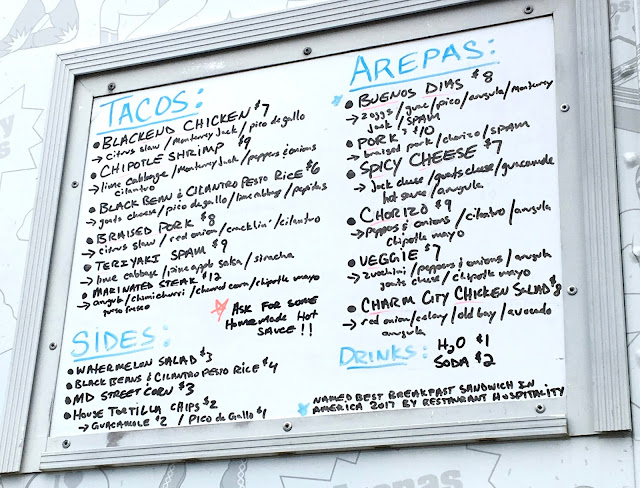 TACOS:
• BLACKEND CHICKEN $7
→ citrus slaw / Monterrey Jack / pico de gallo
• CHIPOTLE SHRIMP $9
→ lime cabbage / Monterrey Jack / peppers & onions
cilantro
• BLACK BEAN & CILANTRO PESTO RICE $6
→ goats cheese / pico de gallo / lime cabbag / pepitas
• BRAISED PORK $8
→ citrus slaw / red onion / cracklin' / cilantro
• TERIYAKI SPAM $9
→ lime cabbage / pineapple salsa / siracha
• MARINATED STEAK $12
→ arugula / chimichurri / charred corn / chipotle mayo
queso fresco
ASK FOR SOME
HOMEMADE HOT
SAUCE !!
SIDES:
• WATERMELON SALAD $3
• BLACK BEANS & CILANTRO PESTO RICE $4
• MD STREET CORN $3
• HOUSE TORTILLA CHIPS $2
→ GUACAMOLE $2 / PICO DE GALLO $1
AREPAS:
• BUENOS DIAS $8
→ 2 eggs / guac / pico / arugula / Monterrey
Jack / SPAM
• PORK³ $10
→ braised pork / chorizo / SPAM
• SPICY CHEESE $7
→ Jack cheese / goats cheese / guacamole
hot sauce / arugula
• CHORIZO $9
→ Peppers & onions / cilantro / arugula
chipotle mayo
• VEGGIE $7
→ zucchini / peppers & onions / arugula
goats cheese / chipotle mayo
• CHARM CITY CHICKEN SALAD $8
→ red onion / celery / old bay / avocado
arugula
DRINKS: H2O $1
SODA $2
NAMED BEST BREAKFAST SANDWICH IN
AMERICA 2017 BY RESTAURANT HOSPITALITY